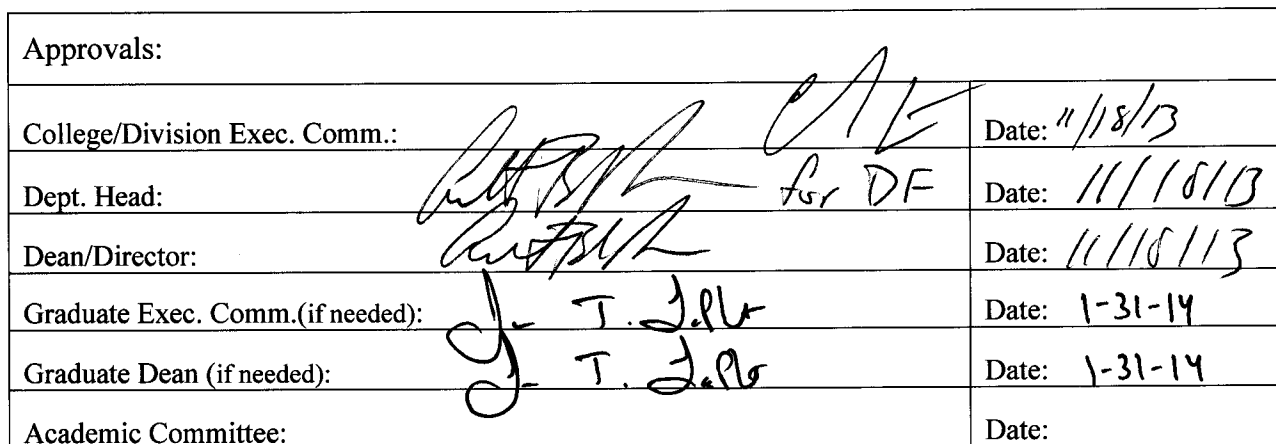 Approvals:
College/Division Exec. Comm.: Date: 11/18/13
Dept. Head: for DF Date: 11/18/13
Dean/Director: Date: 11/18/13
Graduate Exec. Comm.(if needed): Date: 1-31-14
Graduate Dean (if needed): Date: 1-31-14
Academic Committee: Date: